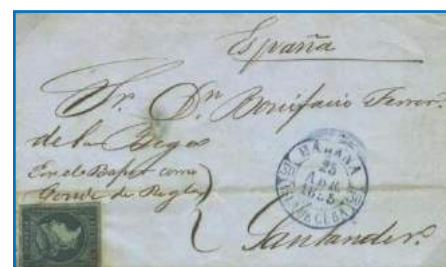 España
Sr. Dn. Bonifacio Ferrer
de la Vega
En el Vapor
Conde de Regla
HABANA
25
ABR
1855
ISLA DE CUBA
Santander.